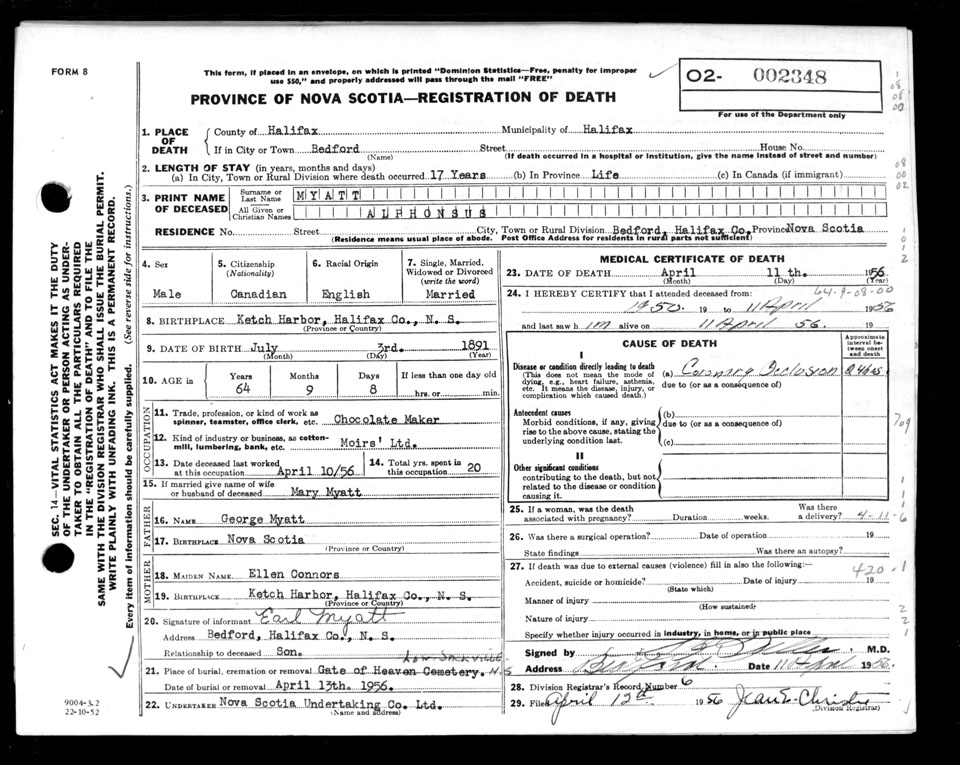 FORM 8
This form, if placed in an envelope, on which is printed "Dominion Statistics—Free, penalty for improper
use $50," and properly addressed will pass through the mail "FREE"
PROVINCE OF NOVA SCOTIA—REGISTRATION OF DEATH
02- 002348
For use of the Department only
1. PLACE OF DEATH
County of Halifax Municipality of Halifax
If in City or Town Bedford Street House No.
(Name) (If death occurred in a hospital or institution, give the name instead of street and number)
2. LENGTH OF STAY (in years, months and days)
(a) In City, Town or Rural Division where death occurred 17 Years (b) In Province Life (c) In Canada (if immigrant)
3. PRINT NAME OF DECEASED
Surname or Last Name MYATT
All Given or Christian Names ALPHONSUS
RESIDENCE No. Street City, Town or Rural Division Bedford, Halifax Co. Province Nova Scotia
(Residence means usual place of abode. Post Office Address for residents in rural parts not sufficient)
4. Sex
Male
5. Citizenship
(Nationality)
Canadian
6. Racial Origin
English
7. Single, Married, Widowed or Divorced
(write the word)
Married
8. BIRTHPLACE Ketch Harbor, Halifax Co., N. S.
(Province or Country)
9. DATE OF BIRTH July 3rd. 1891
(Month) (Day) (Year)
10. AGE in Years Months Days If less than one day old
64 9 8 hrs. or min.
OCCUPATION
11. Trade, profession, or kind of work as
spinner, teamster, office clerk, etc. Chocolate Maker
12. Kind of industry or business, as cotton-
mill, lumbering, bank, etc. Moirs' Ltd.
13. Date deceased last worked
at this occupation April 10/56
14. Total yrs. spent in
this occupation 20
15. If married give name of wife
or husband of deceased Mary Myatt
FATHER
16. NAME George Myatt
17. BIRTHPLACE Nova Scotia
(Province or Country)
MOTHER
18. MAIDEN NAME Ellen Connors
19. BIRTHPLACE Ketch Harbor, Halifax Co., N. S.
(Province or Country)
20. Signature of informant Earl Myatt
Address Bedford, Halifax Co., N. S.
Relationship to deceased Son.
LOW. SACKVILLE
21. Place of burial, cremation or removal Gate of Heaven Cemetery. N.S
Date of burial or removal April 13th. 1956.
22. UNDERTAKER Nova Scotia Undertaking Co. Ltd.
(Name and address)
MEDICAL CERTIFICATE OF DEATH
23. DATE OF DEATH April 11 th. 1956
(Month) (Day) (Year)
64-9-08-00
24. I HEREBY CERTIFY that I attended deceased from:
1950 19 to 11 April 1956
and last saw h im alive on 11 April 56. 19
CAUSE OF DEATH
Approximate interval between onset and death
I
Disease or condition directly leading to death
(This does not mean the mode of
dying, e.g., heart failure, asthenia,
etc. It means the disease, injury, or
complication which caused death.)
(a) Coronary Occlusion
due to (or as a consequence of)
Antecedent causes
Morbid conditions, if any, giving
rise to the above cause, stating the
underlying condition last.
(b)
due to (or as a consequence of)
(c)
II
Other significant conditions
contributing to the death, but not
related to the disease or condition
causing it.
25. If a woman, was the death
associated with pregnancy? Duration weeks. Was there
a delivery? 4-11-6
26. Was there a surgical operation? Date of operation 19
State findings Was there an autopsy?
27. If death was due to external causes (violence) fill in also the following:—
420-1
Accident, suicide or homicide? Date of injury 19
(State which)
Manner of injury
(How sustained)
Nature of injury
Specify whether injury occurred in industry, in home, or in public place
Signed by M.D.
Address Bedford Date 11 April 1956.
28. Division Registrar's Record Number 6
29. Filed April 12th 1956 Jean E. Christie
(Division Registrar)
SEC. 14—VITAL STATISTICS ACT MAKES IT THE DUTY
OF THE UNDERTAKER OR PERSON ACTING AS UNDER-
TAKER TO OBTAIN ALL THE PARTICULARS REQUIRED
IN THE "REGISTRATION OF DEATH" AND TO FILE THE
SAME WITH THE DIVISION REGISTRAR WHO SHALL ISSUE THE BURIAL PERMIT.
WRITE PLAINLY WITH UNFADING INK. THIS IS A PERMANENT RECORD.
Every item of information should be carefully supplied. (See reverse side for instructions.)
9004-3.2
22-10-52